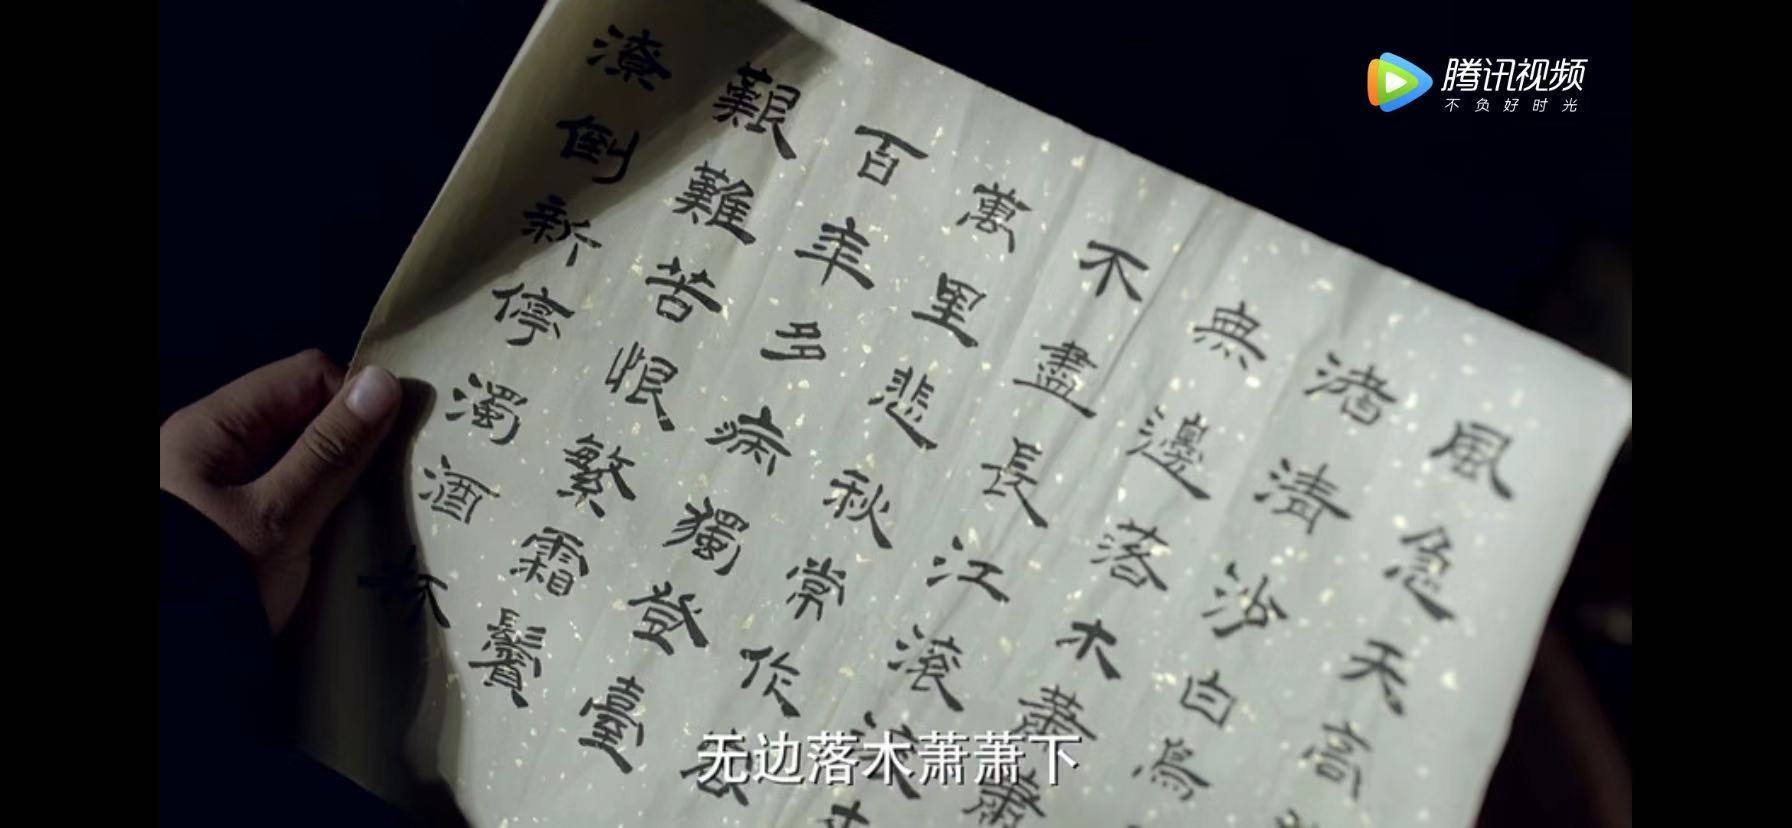 腾讯视频
不负好时光
風急天高
渚清沙白鳥
無邊落木蕭蕭
不盡長江滾
萬里悲秋常作客
百年多病獨登臺
艱難苦恨繁霜鬢
潦倒新停濁酒杯
无边落木萧萧下